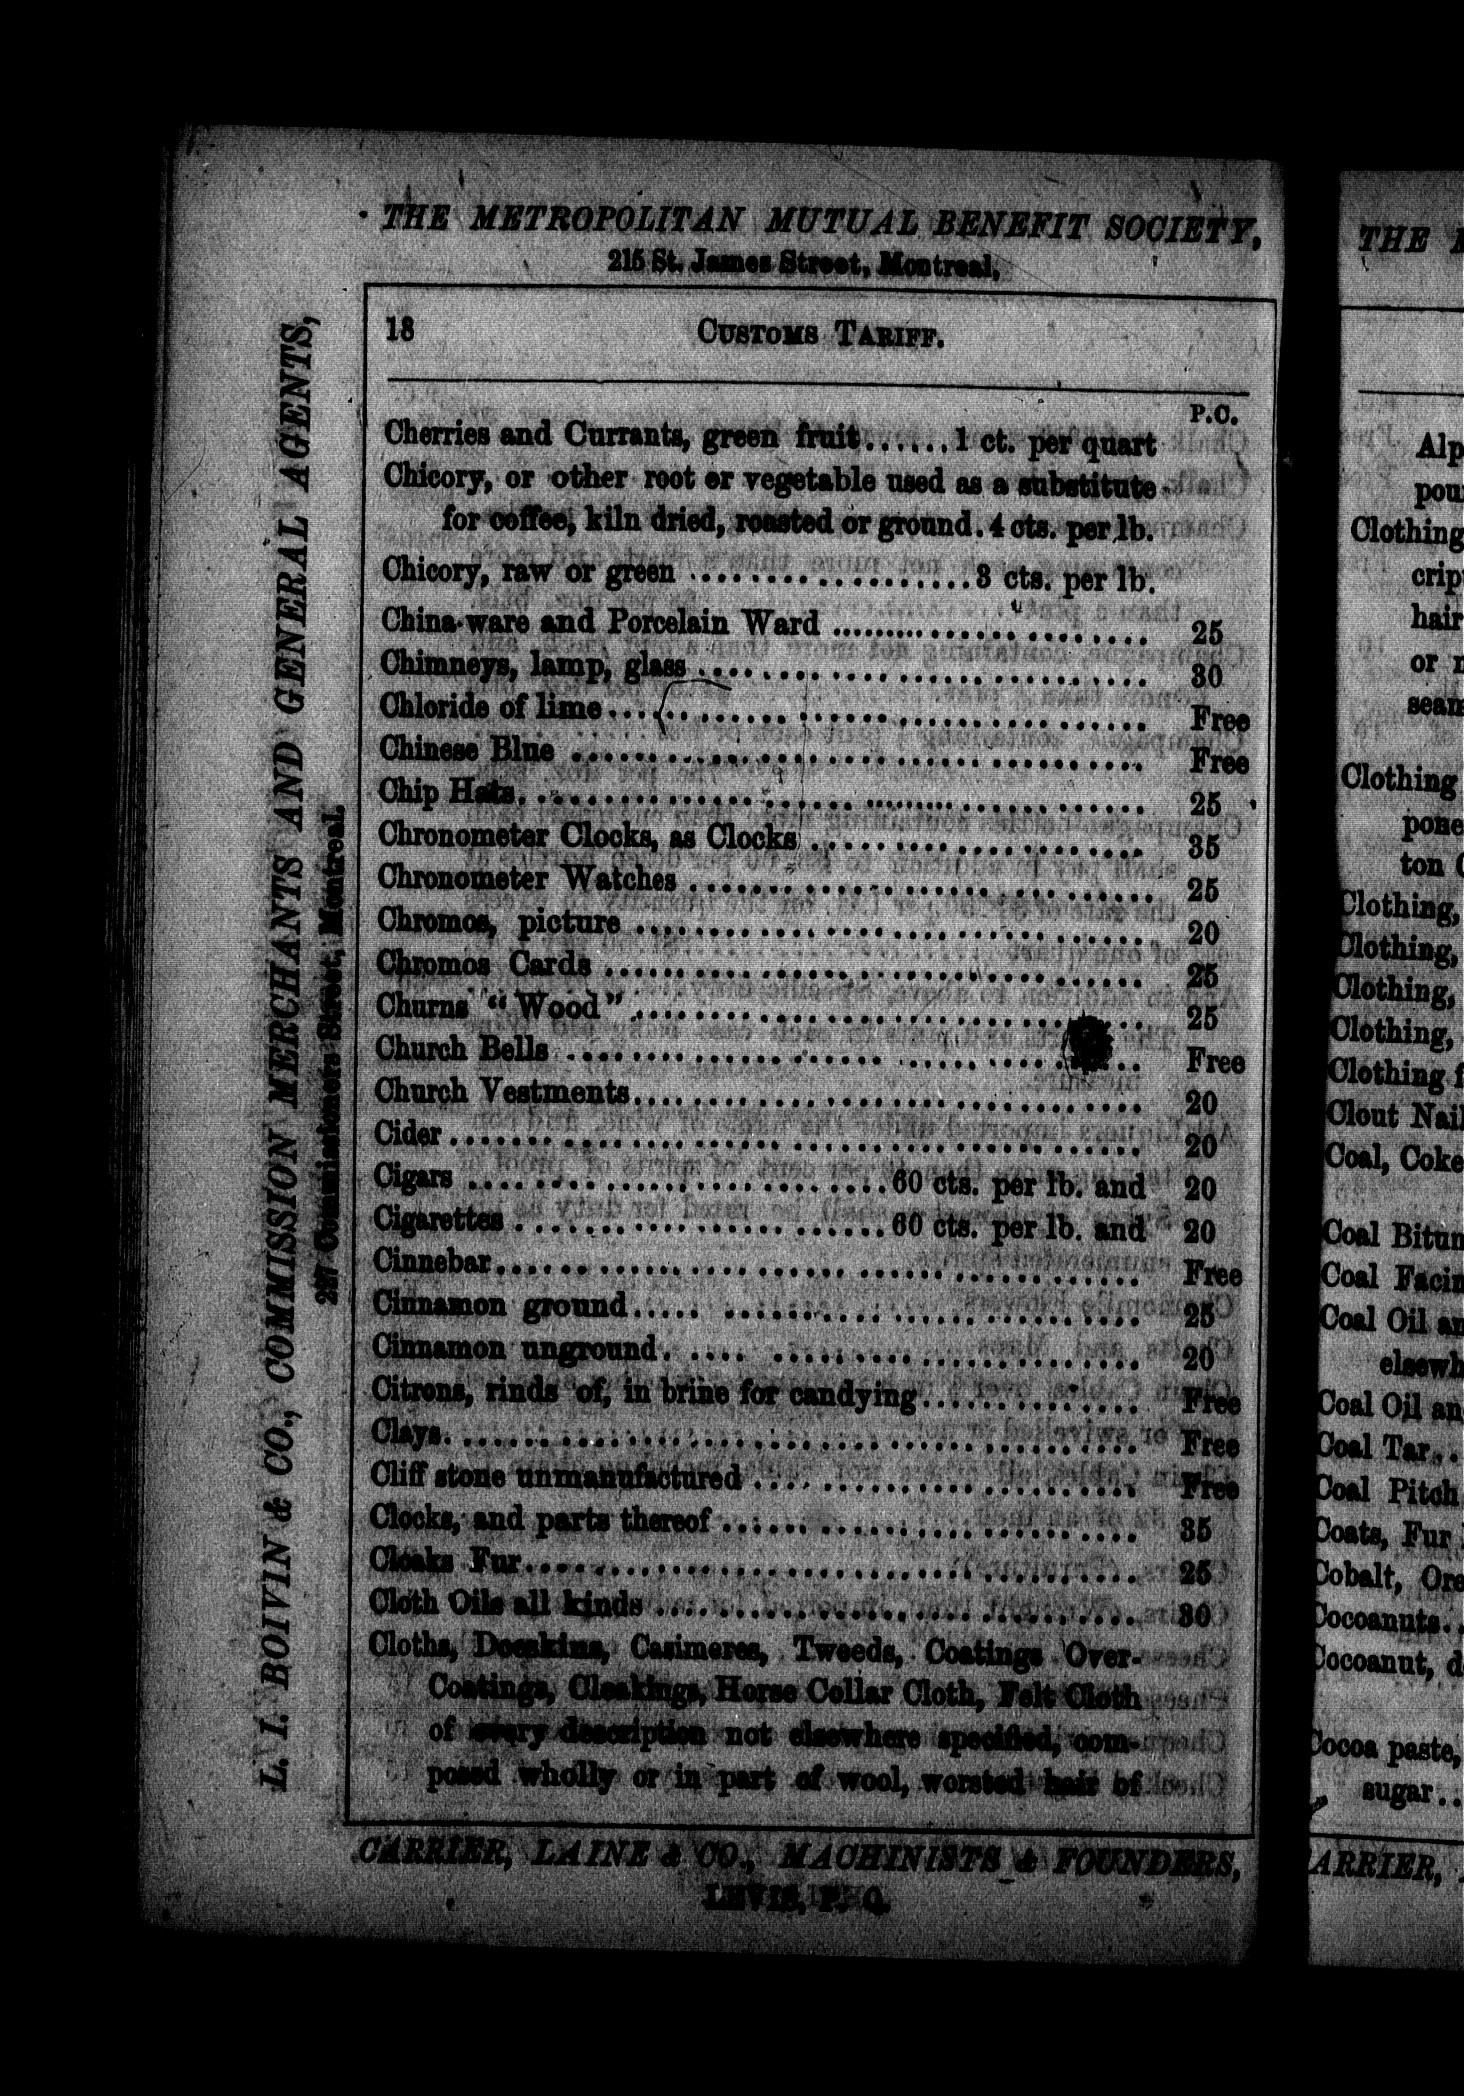 THE METROPOLITAN MUTUAL BENEFIT SOCIETY,
215 St. James Street, Montreal.
L. I. BOIVIN & CO., COMMISSION MERCHANTS AND GENERAL AGENTS,
Commissioners Street, Montreal.
18 CUSTOMS TARIFF.
P.C.
Cherries and Currants, green fruit......1 ct. per quart
Chicory, or other root or vegetable used as a substitute
for coffee, kiln dried, roasted or ground.4 cts. per lb.
Chicory, raw or green ..................3 cts. per lb.
China-ware and Porcelain Ward ...................... 25
Chimneys, lamp, glass ........................ 30
Chloride of lime............................ Free
Chinese Blue .............................. Free
Chip Hats................................. 25
Chronometer Clocks, as Clocks .................. 35
Chronometer Watches ........................ 25
Chromos, picture ........................... 20
Chromos Cards ............................ 25
Churns "Wood" ........................... 25
Church Bells .............................. Free
Church Vestments........................... 20
Cider.................................... 20
Cigars ......................60 cts. per lb. and 20
Cigarettes ....................60 cts. per lb. and 20
Cinnebar................................. Free
Cinnamon ground.......................... 25
Cinnamon unground......................... 20
Citrons, rinds of, in brine for candying.............. Free
Clays.................................... Free
Cliff stone unmanufactured .................... Free
Clocks, and parts thereof ...................... 35
Cloaks Fur................................ 25
Cloth Oils all kinds .......................... 30
Cloths, Doeskins, Casimeres, Tweeds, Coatings Over-
Coatings, Cloakings, Horse Collar Cloth, Felt Cloth
of every description not elsewhere specified, com-
posed wholly or in part of wool, worsted hair of
CARRIER, LAINE & CO., MACHINISTS & FOUNDERS,
LEVIS, P. Q.
THE
Alp
pou
Clothing
crip
hair
or
seam
Clothing
pone
ton
Clothing,
Clothing,
Clothing,
Clothing,
Clothing f
Clout Nail
Coal, Coke
Coal Bitum
Coal Facin
Coal Oil an
elsewh
Coal Oil an
Coal Tar..
Coal Pitch
Coats, Fur
Cobalt, Ore
Cocoanuts..
Cocoanut, d
Cocoa paste,
sugar..
ARRIER,